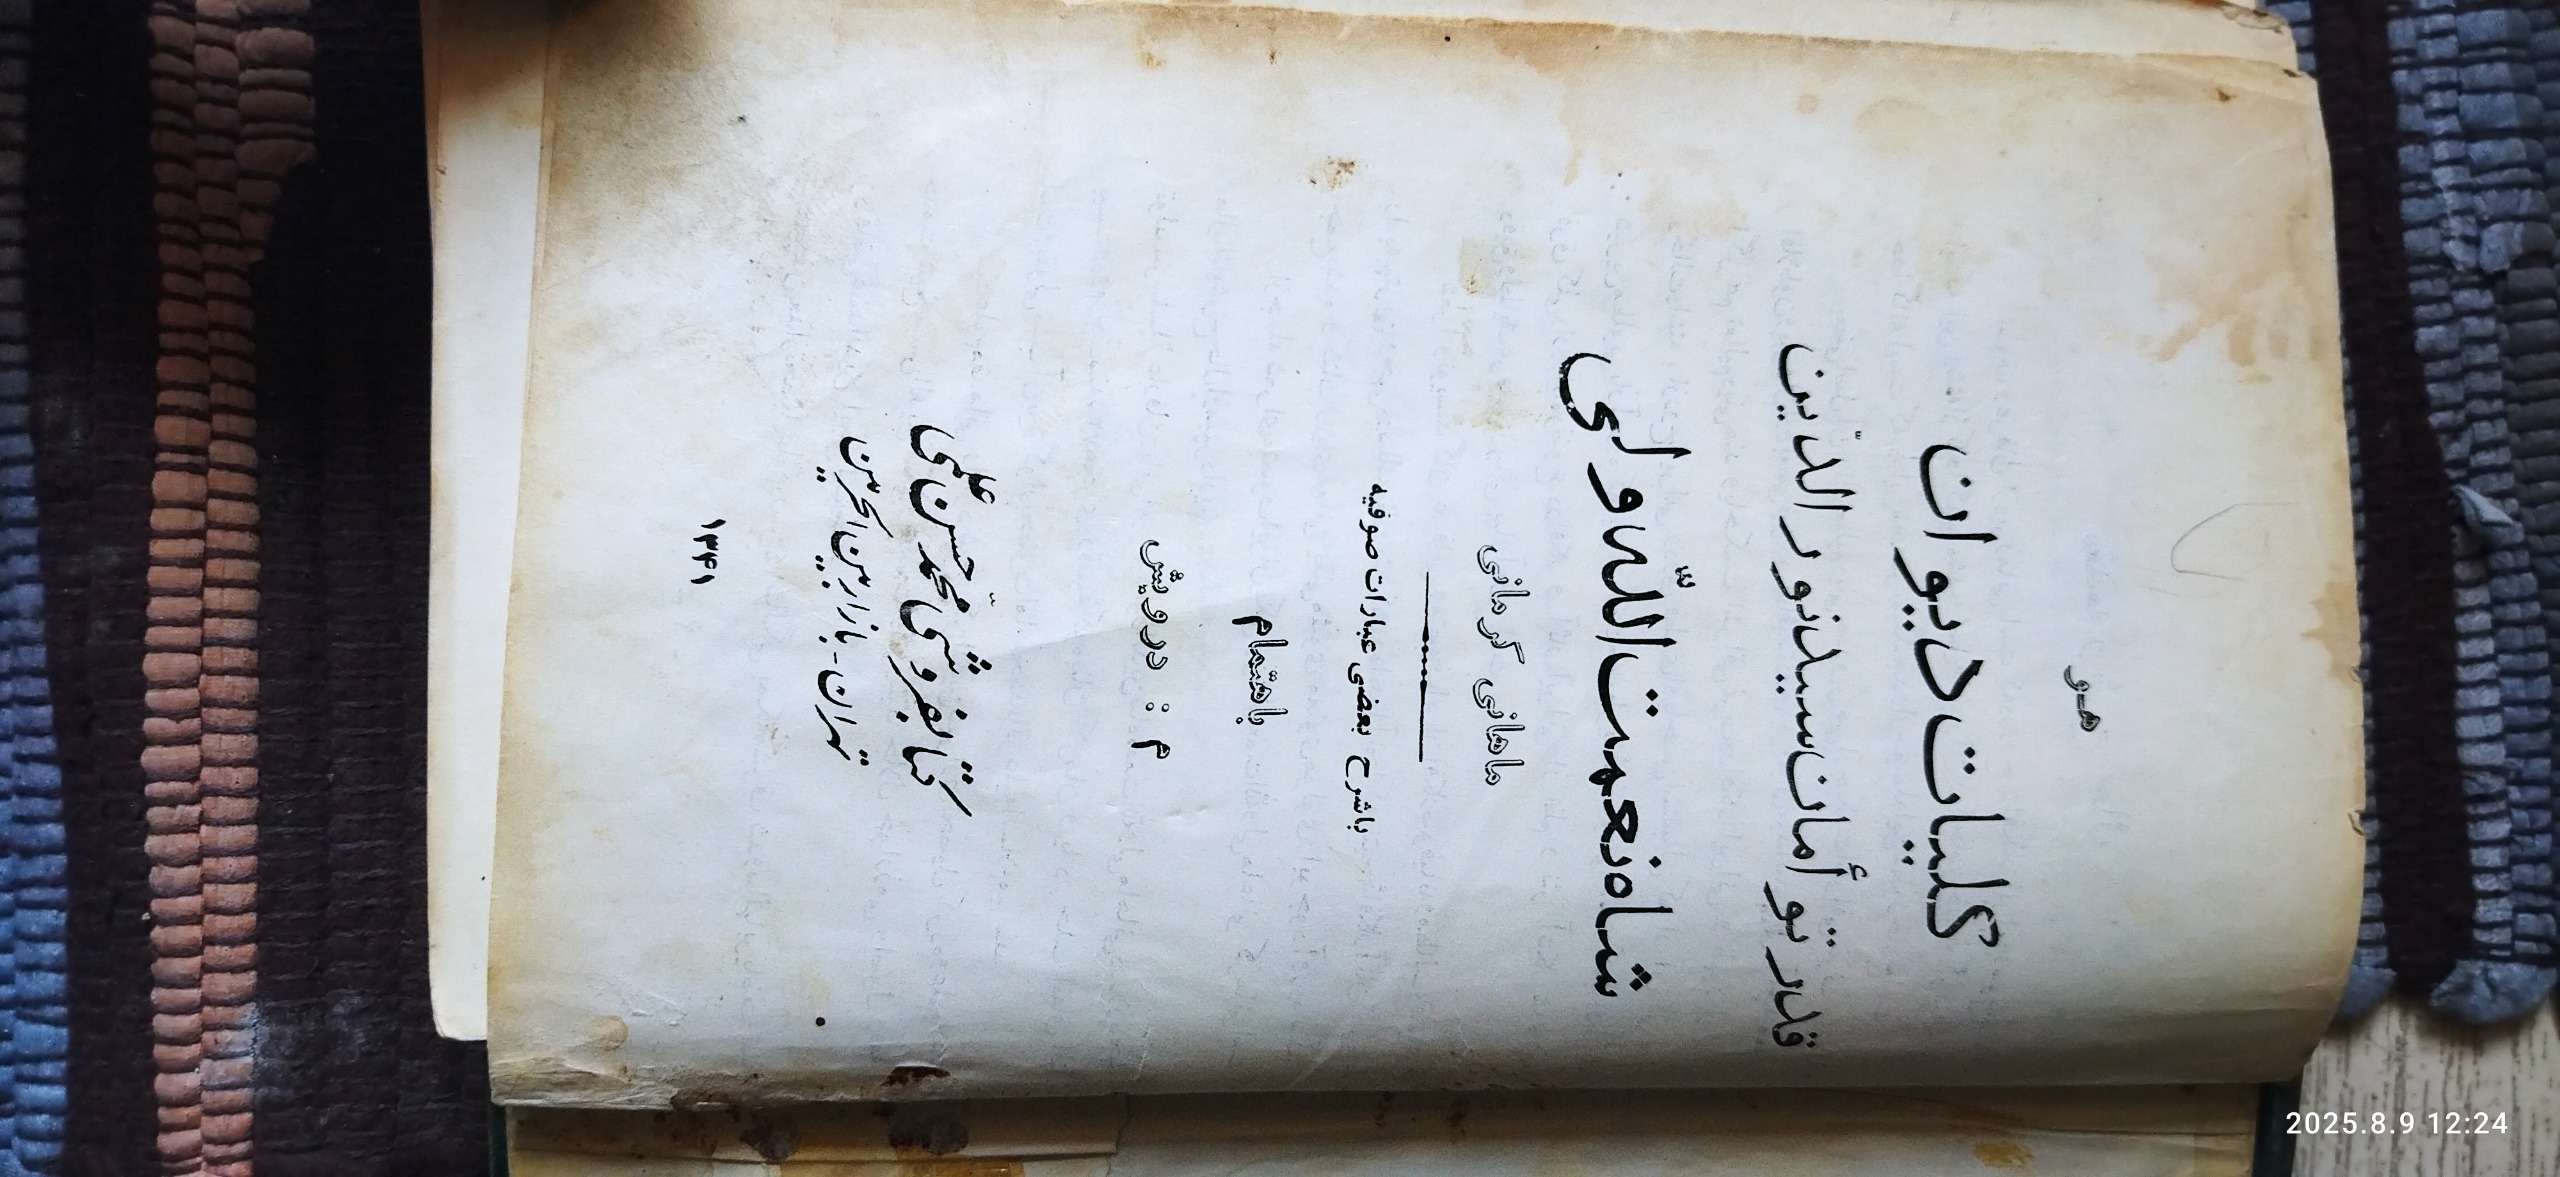 هو
کلیات دیوان
قدر تو أمان سید نور الدّین
شاه نعمت اللّه ولی
ماهانی کرمانی
با شرح بعضی عبارات صوفیه
باهتمام
م : درویش
کتابفروشی محمّد حسن علمی
تهران - بازار بین الحرمین
۱۳۴۱
2025.8.9 12:24